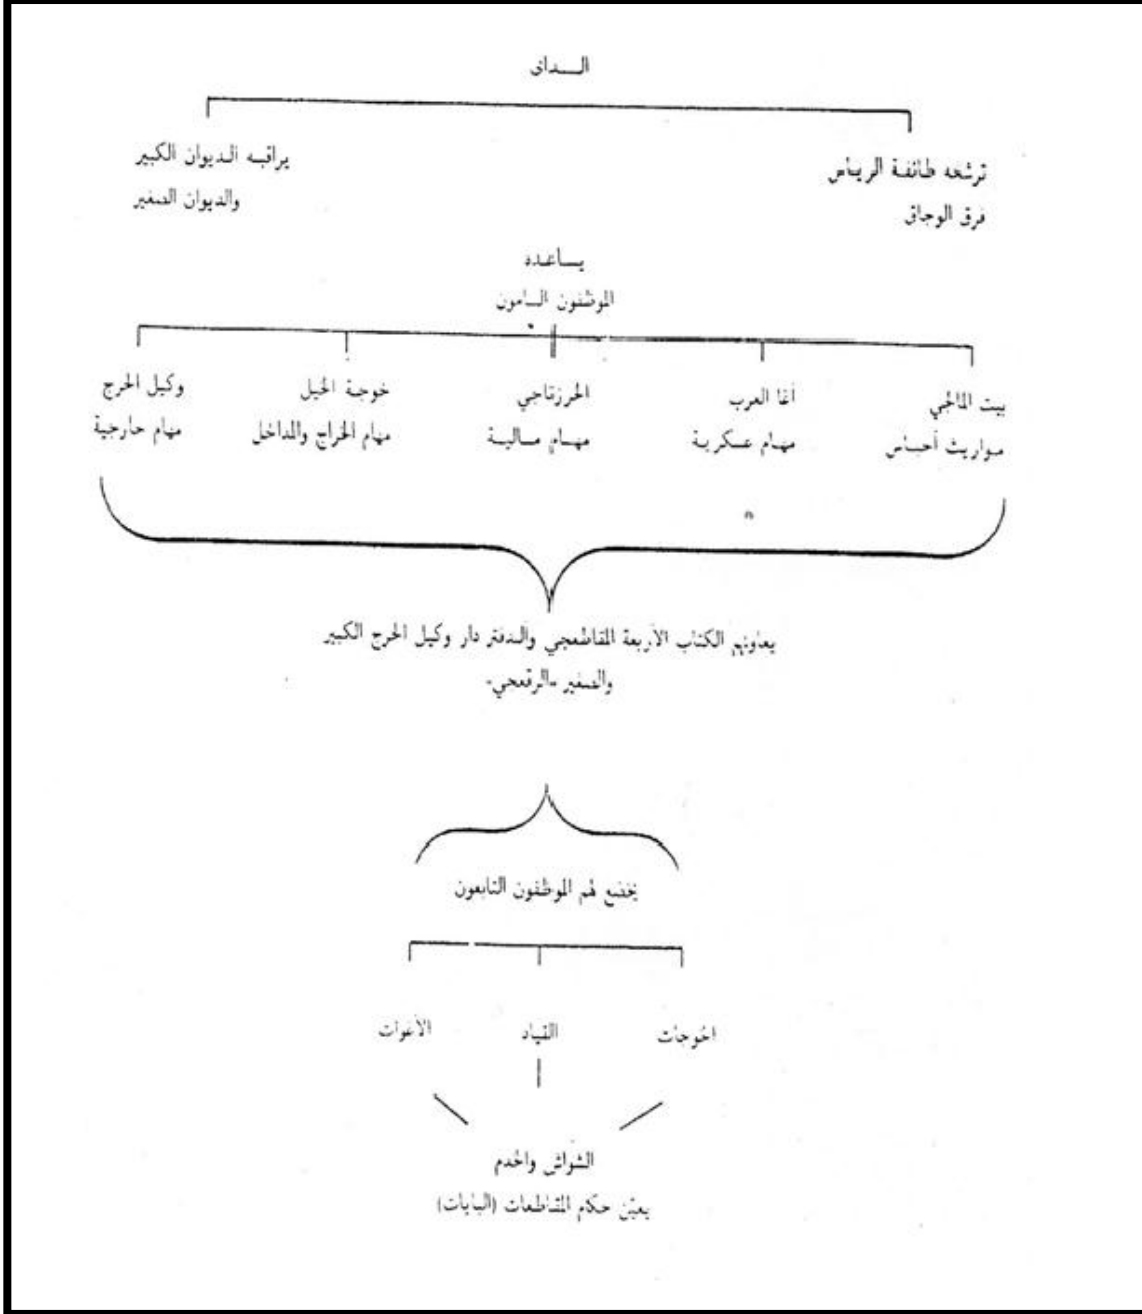 الـــداى
ترشحه طائفة الرياس
فرق الوجاق
يراقبه الديوان الكبير
والديوان الصغير
يساعده
الموظفون السامون
بيت المالجي
مواريث أحباس
أغا العرب
مهام عسكرية
الخرزناجي
مهام مالية
خوجة الخيل
مهام الخراج والمداخل
وكيل الحرج
مهام خارجية
يعاونهم الكتاب الأربعة المقاطعجي والدفتر دار وكيل الحرج الكبير
والصغير -الرقعجي-
يخضع لهم الموظفون التابعون
الخوجات
القياد
الأغوات
الشواش والخدم
يعيّن حكام المقاطعات (البايات)